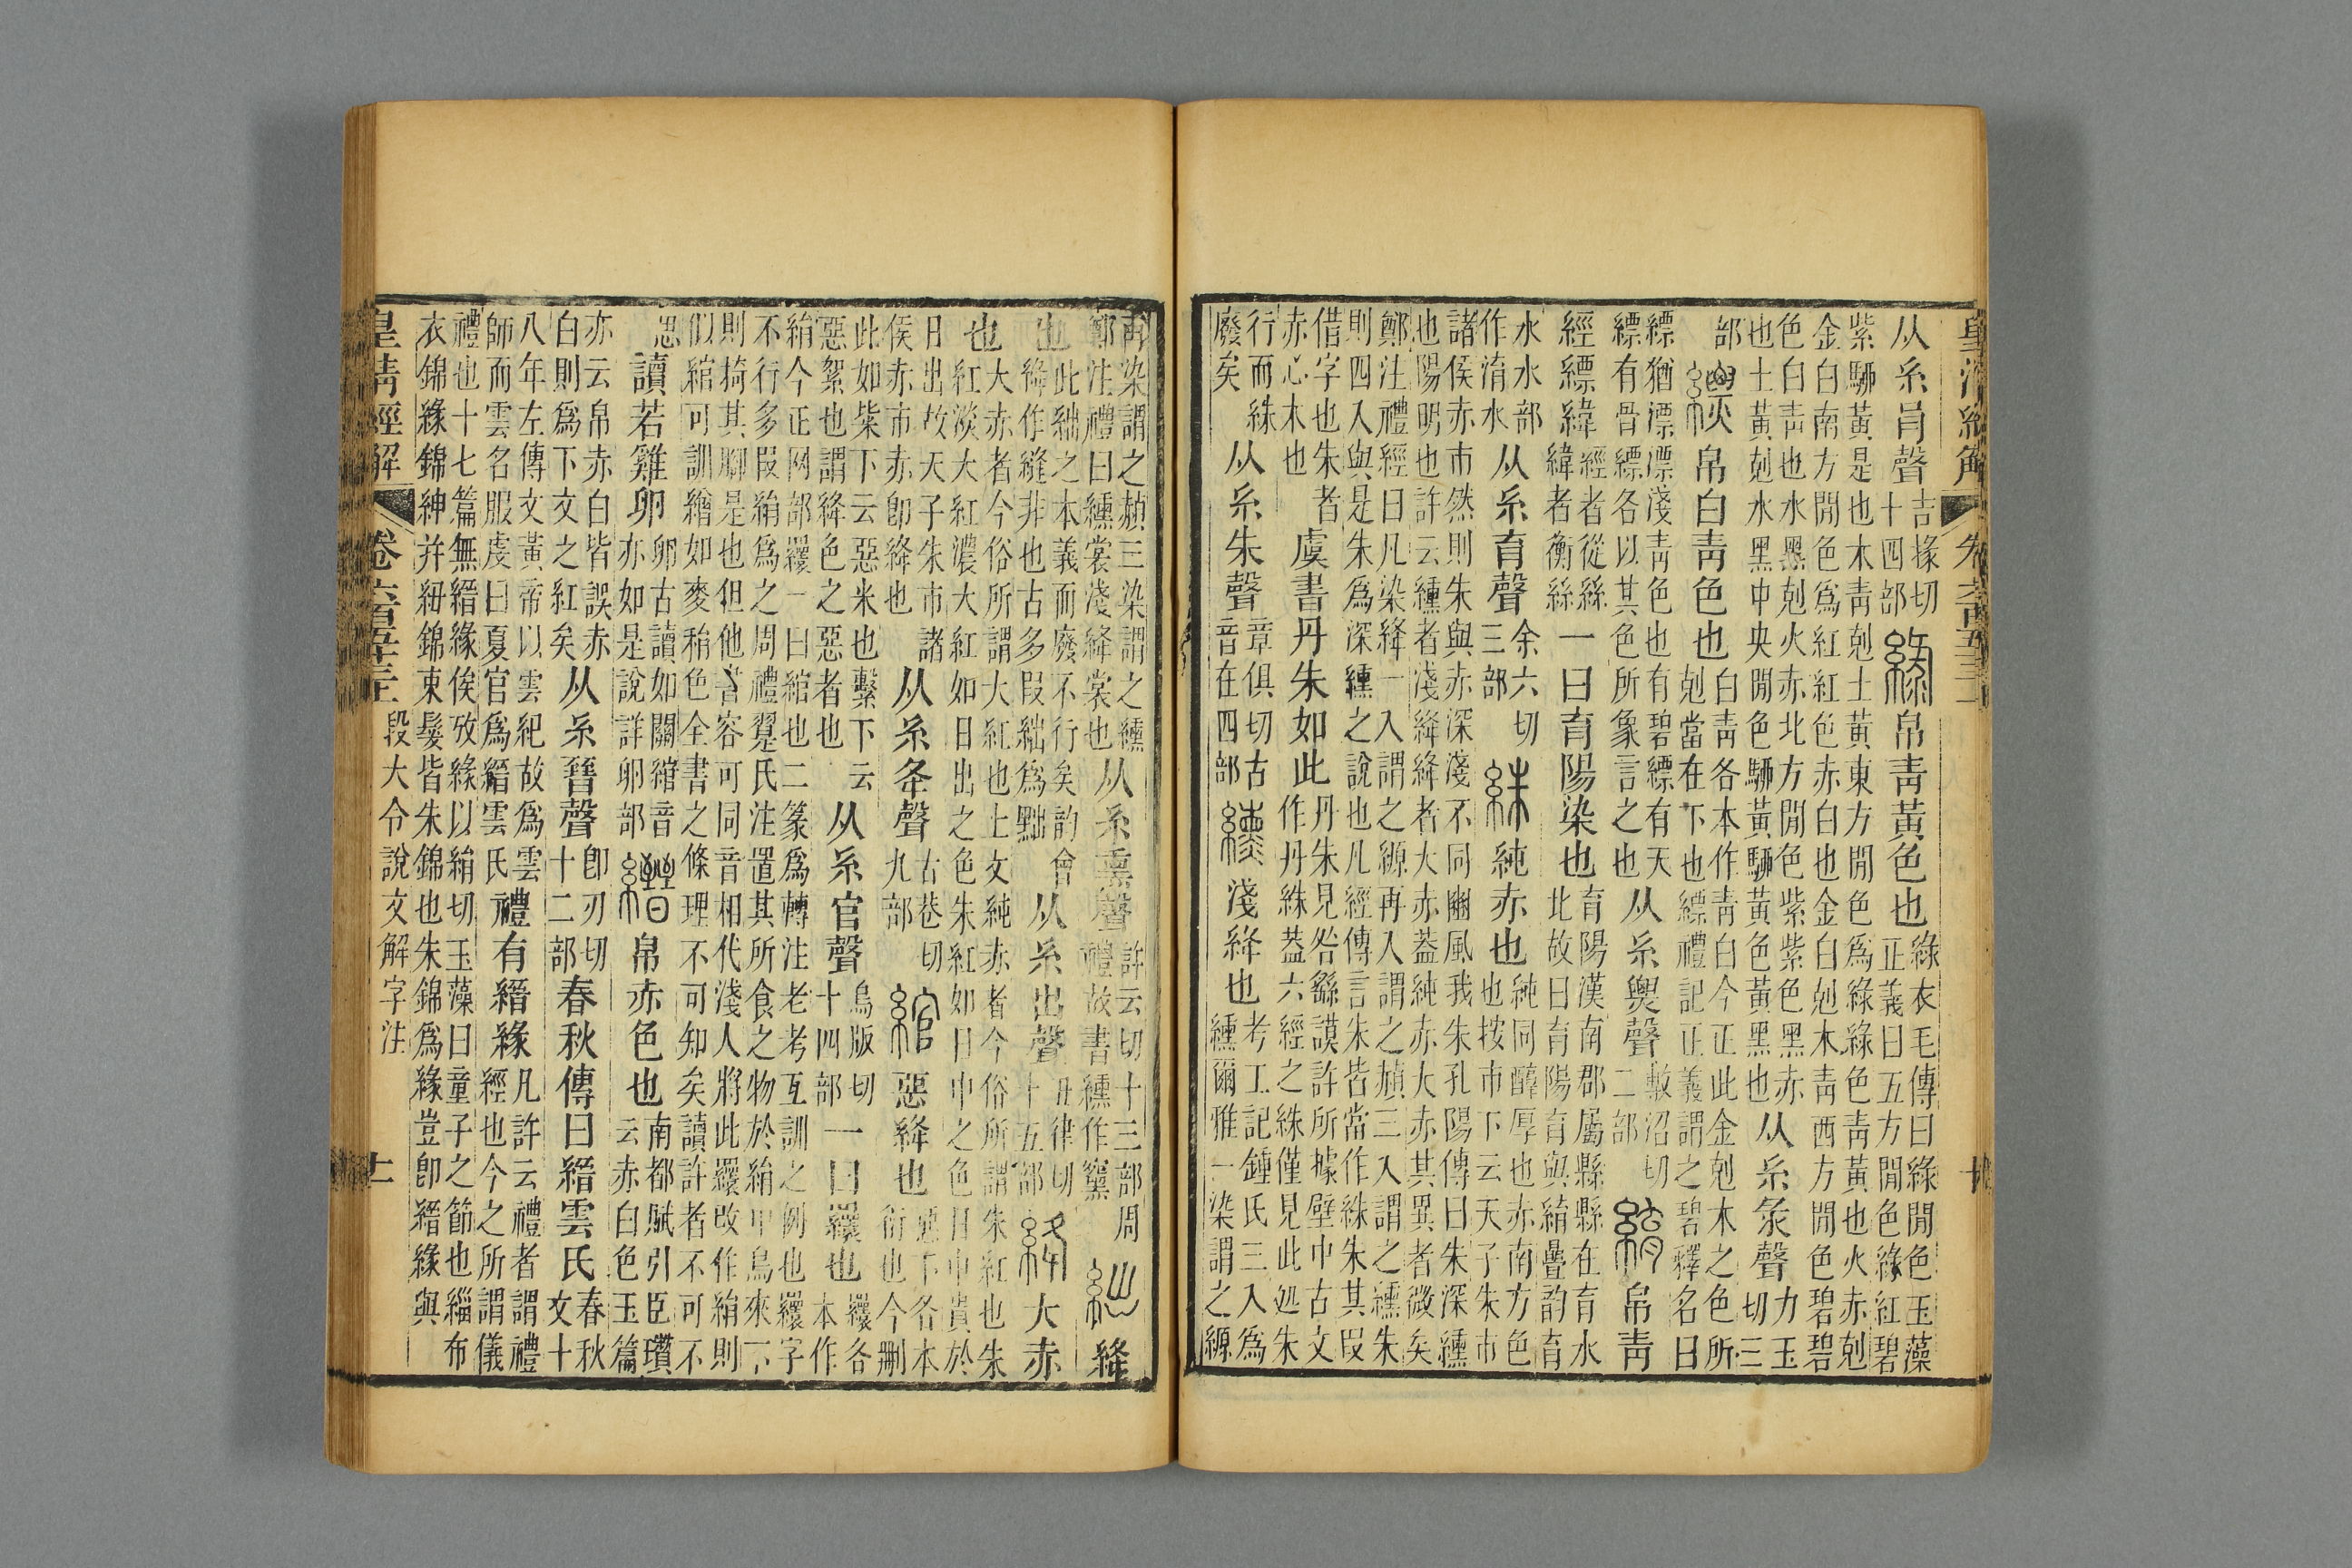 皇清經解 卷六百五十三 十
从糸肙聲吉掾切十四部綠帛青黃色也綠衣毛傳曰綠閒色玉藻正義曰五方閒色綠紅碧
紫駵黃是也木青剋土黃東方閒色爲綠綠色青黃也火赤剋金白南方閒色爲紅紅色赤白也金白剋木青西方閒色碧碧
色白青也水黑剋火赤北方閒色紫紫色黑赤也土黃剋水黑中央閒色駵黃駵黃色黃黑也从糸彔聲力玉切三
部縹帛白青色也白青各本作青白今正此金剋木之色所剋當在下也縹禮記正義謂之碧釋名曰
縹猶漂漂淺青色也有碧縹有天縹有骨縹各以其色所象言之也从糸㶾聲敷沼切二部綃帛青
經縹緯經者從絲緯者衡絲一曰育陽染也育陽漢南郡屬縣縣在育水北故曰育陽育與綃曡韵育
水水部作淯水从糸育聲余六切三部絑純赤也純同醇厚也赤南方色也按巿下云天子朱巿
諸侯赤巿然則朱與赤深淺不同豳風我朱孔陽傳曰朱深纁也陽明也許云纁者淺絳絳者大赤葢純赤大赤其異者微矣
鄭注禮經曰凡染絳一入謂之縓再入謂之䞓三入謂之纁朱則四入與是朱爲深纁之說也凡經傳言朱皆當作絑朱其叚
借字也朱者赤心木也虞書丹朱如此丹朱見咎繇謨許所據壁中古文作丹絑葢六經之絑僅見此処朱
行而絑廢矣从糸朱聲章俱切古音在四部纁淺絳也考工記鍾氏三入爲纁爾雅一染謂之縓
再染謂之䞓三染謂之纁鄭注禮曰纁裳淺絳裳也从糸熏聲許云切十三部周禮故書纁作䵫絀絳
也此絀之本義而廢不行矣韵會絳作縫非也古多叚絀爲黜从糸出聲丑律切十五部絳大赤
也大赤者今俗所謂大紅也上文純赤者今俗所謂朱紅也朱紅淡大紅濃大紅如日出之色朱紅如日中之色日中貴於
日出故天子朱巿諸侯赤巿赤卽絳也从糸夅聲古巷切九部綰惡絳也惡下各本衍也今刪
此如柴下云惡米也繫下云惡絮也謂絳色之惡者也从糸官聲烏版切十四部一曰䍐也䍐各本作
綃今正网部䍐一曰綰也二篆爲轉注老考互訓之例也䍐字不行多叚綃爲之周禮翨氏注置其所食之物於綃中鳥來下
則掎其腳是也但他書容可同音相代淺人將此䍐改作綃則似綰可訓繒如麥䅌色全書之條理不可知矣讀許者不可不
思讀若雞卵卵古讀如關綰音亦如是說詳卵部縉帛赤色也南都賦引臣瓚云赤白色玉篇
亦云帛赤白皆誤赤白則爲下文之紅矣从糸晉聲卽刃切十二部春秋傳曰縉雲氏春秋文十
八年左傳文黃帝以雲紀故爲雲師而雲名服虔曰夏官爲縉雲氏禮有縉緣凡許云禮者謂禮經也今之所謂儀
禮也十七篇無縉緣俟攷緣以綃切玉藻曰童子之節也緇布衣錦緣錦紳幷紐錦束髮皆朱錦也朱錦爲緣豈卽縉緣與
皇清經解 卷六百五十三 段大令說文解字注 十一